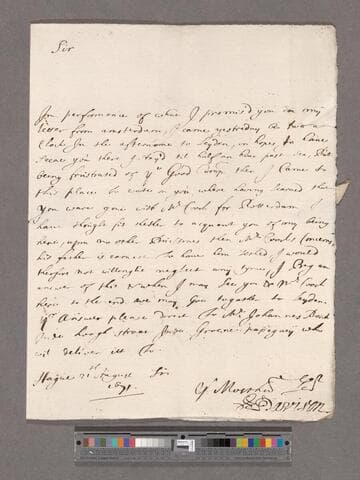 Sir
In performance of what I promised you in my
letter from amsterdam, I came yesterday at two a
Clock In the afternoone to Leyden, in hopes to have
seene you there I stay'd til half an houre past six, But
being frustrated of yr Good Comp: then I Came to
this place to waite on you where having learned that
you ware gone with Mr Cook for Rotterdam I
have thought fit hither to acquent you of my being
here, upon no other business then Mr Cooks Concerns,
his father is earnest to have him setled, I would
therfor not willingly neglect any tyme, I Beg an
answer of this & when I may see you & Mr Cook
here to the end we may Goe togather to Leyden.
Yr Answer please direct To Mr Johannes
Inde hoogh straat Inde Groene papegaey who
wil deliver itt To
Sir
Hague 21st August
1671
Yr Most
Davison